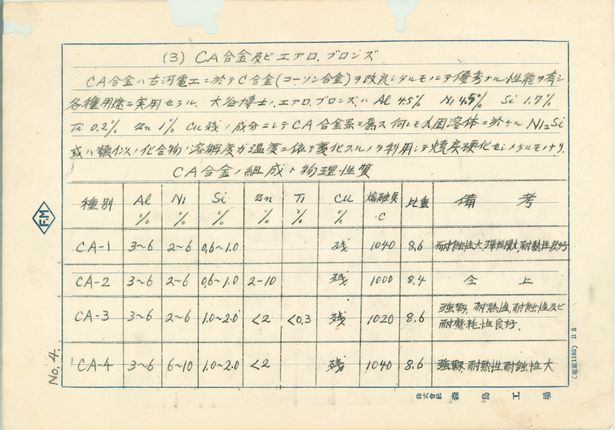 (3) CA合金及ビエアロ.ブロンズ
CA合金ハ古河電工ニ於テC合金(コーソン合金)ヲ改良シタルモノニテ優秀ナル性能ヲ有シ
各種用途ニ実用セラル. 大谷博士ノエアロ.ブロンズハ Al 4.5% Ni 4.5% Si 1.7%
Ti 0.2% Zn 1% Cu残ノ成分ニシテCA合金系ニ属ス 何レモ固溶体ニ於ケルNi2Si
或ハ類似ノ化合物ノ溶解度ガ温度ニ依リ変化スルヲ利用シテ焼戻硬化セシメタルモノナリ.
CA合金ノ組成ト物理性質
種別 Al % Ni % Si % Zn % Ti % Cu % 熔融点 °C 比重 備考
CA-1 3~6 2~6 0.6~1.0 残 1040 8.6 耐蝕性大,弾性大,耐熱性良好
CA-2 3~6 2~6 0.6~1.0 2-10 残 1000 8.4 仝上
CA-3 3~6 2~6 1.0~2.0 <2 <0.3 残 1020 8.6 強靱,耐熱性,耐蝕性及ビ
耐磨耗性良好.
CA-4 3~6 6~10 1.0~2.0 <2 残 1040 8.6 強靱,耐熱性耐蝕性大
FM
No. 4.
B5
株式会社 森島工場